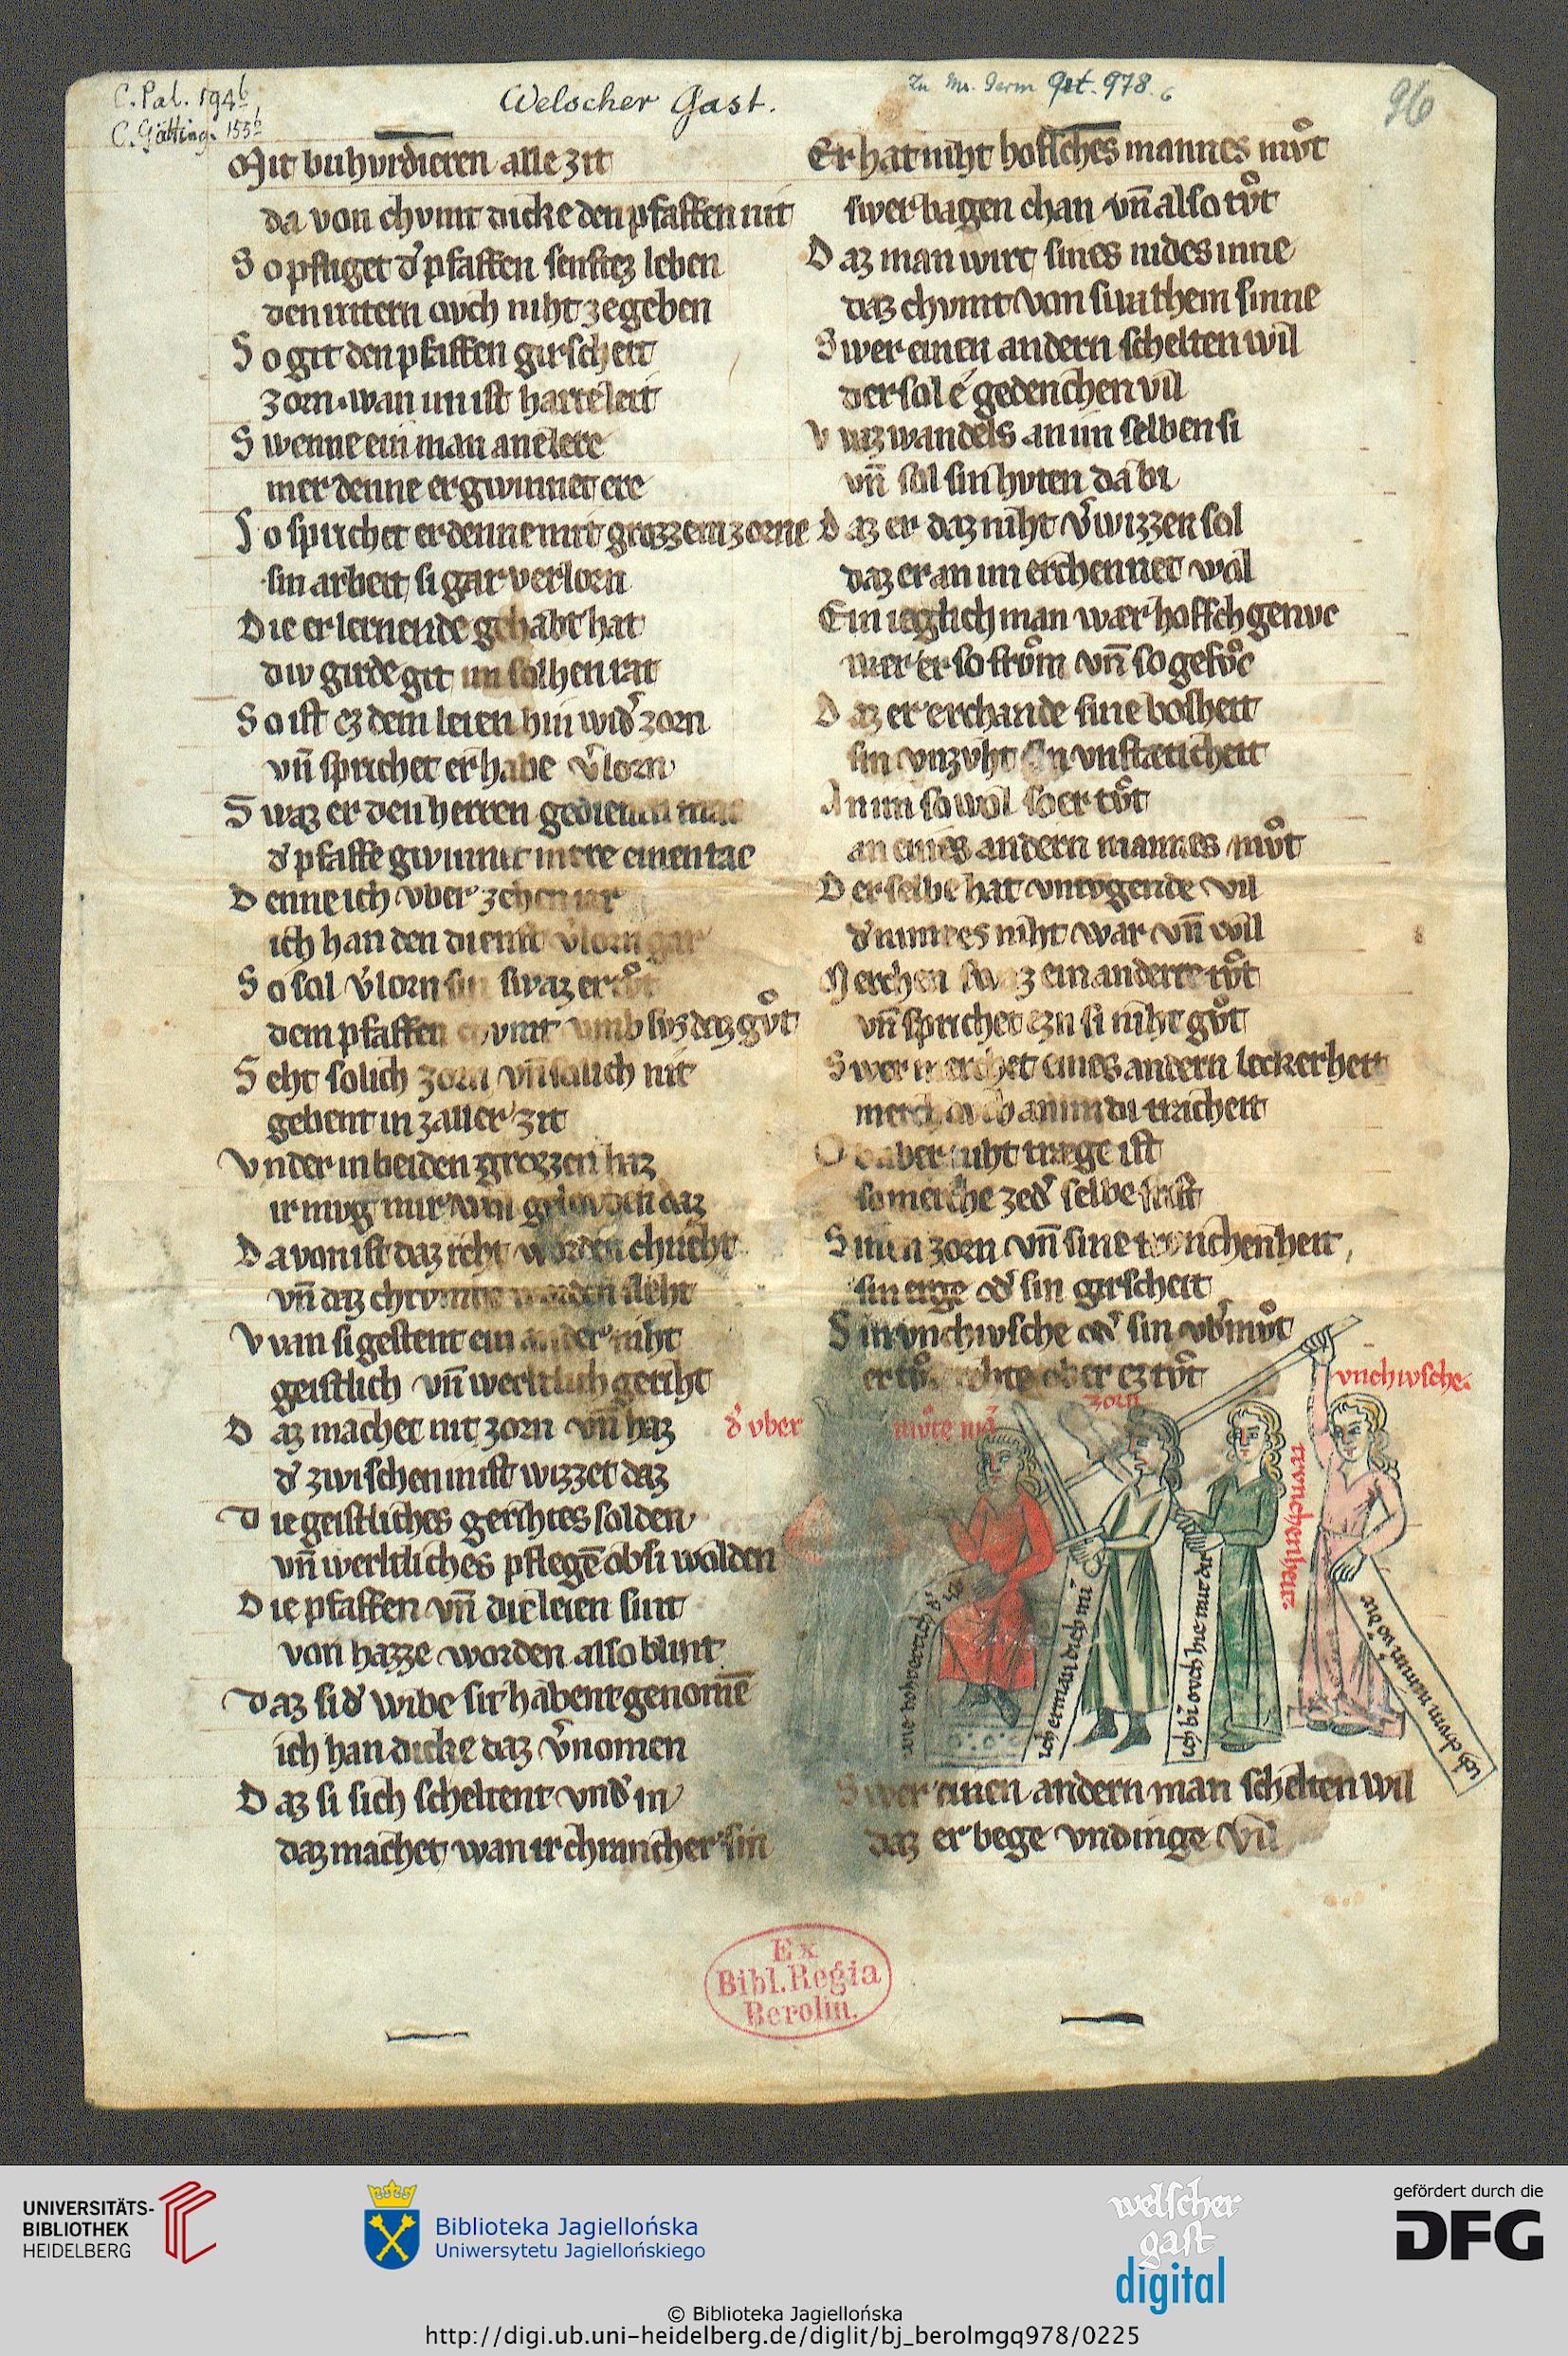 C. Pal. 194b,
C. Götting. 155b
Welscher Gast.
Zu Ms. Germ Qrt. 978. 6
96
Mit buhurdieren alle zit
da von chvmt dicke den pfaffen nit
So pfliget d' pfaffen senftez leben
den rittern ovch niht ze geben
So git den pfaffen girscheit
zorn · wan im ist harte leit
Swenne ein man an lere
mer denne er gwinnet ere
So sprichet er denne mit grozzem zorne
sin arbeit si gar verlorn
Die er lernende gehabt hat
div girde git im solhen rat
So ist ez dem leien hin wid' zorn
vn̄ sprichet er habe v'lorn
Swaz er den herren gedienen mac
d' pfaffe gwinnit mere einen tac
Denne ich vber zehen iar
ich han den dienst v'lorn gar
So sol v'lorn sin swaz er tvͦt
dem pfaffen chvmt vmb svs daz gvͦt
Seht solich zorn vn̄ solich nit
gebent in zaller zit
Vnder in beiden grozzen haz
ir mvg mir wol gelovben daz
Da von ist daz reht worden chrieht
vn̄ daz chrvmbe worden sleht
Vvan si gestent ein ander niht
geistlich vn̄ werltlich geriht
Daz machet nit zorn vn̄ haz
d' zwischen in ist wizzet daz
Die geistliches gerihtes solden
vn̄ werltliches pflegē ob si wolden
Die pfaffen vn̄ die leien sint
von hazze worden also blint
Daz si d' wibe sit habent genomē
ich han dicke daz v'nomen
Daz si sich scheltent vnd' in
daz machet wan ir chrancher sin
Er hat niht hofsches mannes mvͦt
swer bagen chan vn̄ also tvͦt
Daz man wirt sines nides inne
daz chvmt von sinthem sinne
Swer einen andern schelten wil
der sol e gedenchen vil
Vvaz wandels an im selben si
vn̄ sol sin hvten da bi
Daz er daz niht v'wizzen sol
daz er an im erchennet wol
Ein ieglich man wær hofsch genvc
wær er so frvͦm vn̄ so gefvͦc
Daz er erchande sine bosheit
sin vnzvht sin vnstætcheit
An im so wol so er tvͦt
an eines andern mannes mvͦt
Der selbe hat vntvgende vil
d' nimt es niht war vn̄ wil
Merchen swaz ein anderre tvͦt
vn̄ sprichet ezn si niht gvͦt
Swer merchet eines andern leckerheit
merch ovch an im di tracheit
Ob aber niht træge ist
so merche zed' selbe frist
Sinen zorn vn̄ sine trvnchenheit,
sin erge od' sin girscheit
Sin vnchivsche od' sin vb'mvͦt
er tvͦ rehte ob er ez tvͦt
vnchivsche.
zorn
d' vber mvͦte mā
trvnchenheit
ich erman dich mī
ich bī ovch hie mit dir
ich chvm nimmer vō dir
Swer einen andern man schelten wil
daz er bege vndinge vil
Ex
Bibl. Regia
Berolin.
UNIVERSITÄTS-
BIBLIOTHEK
HEIDELBERG
Biblioteka Jagiellońska
Uniwersytetu Jagiellońskiego
welscher
gast
digital
gefördert durch die
DFG
© Biblioteka Jagiellońska
http://digi.ub.uni-heidelberg.de/diglit/bj_berolmgq978/0225